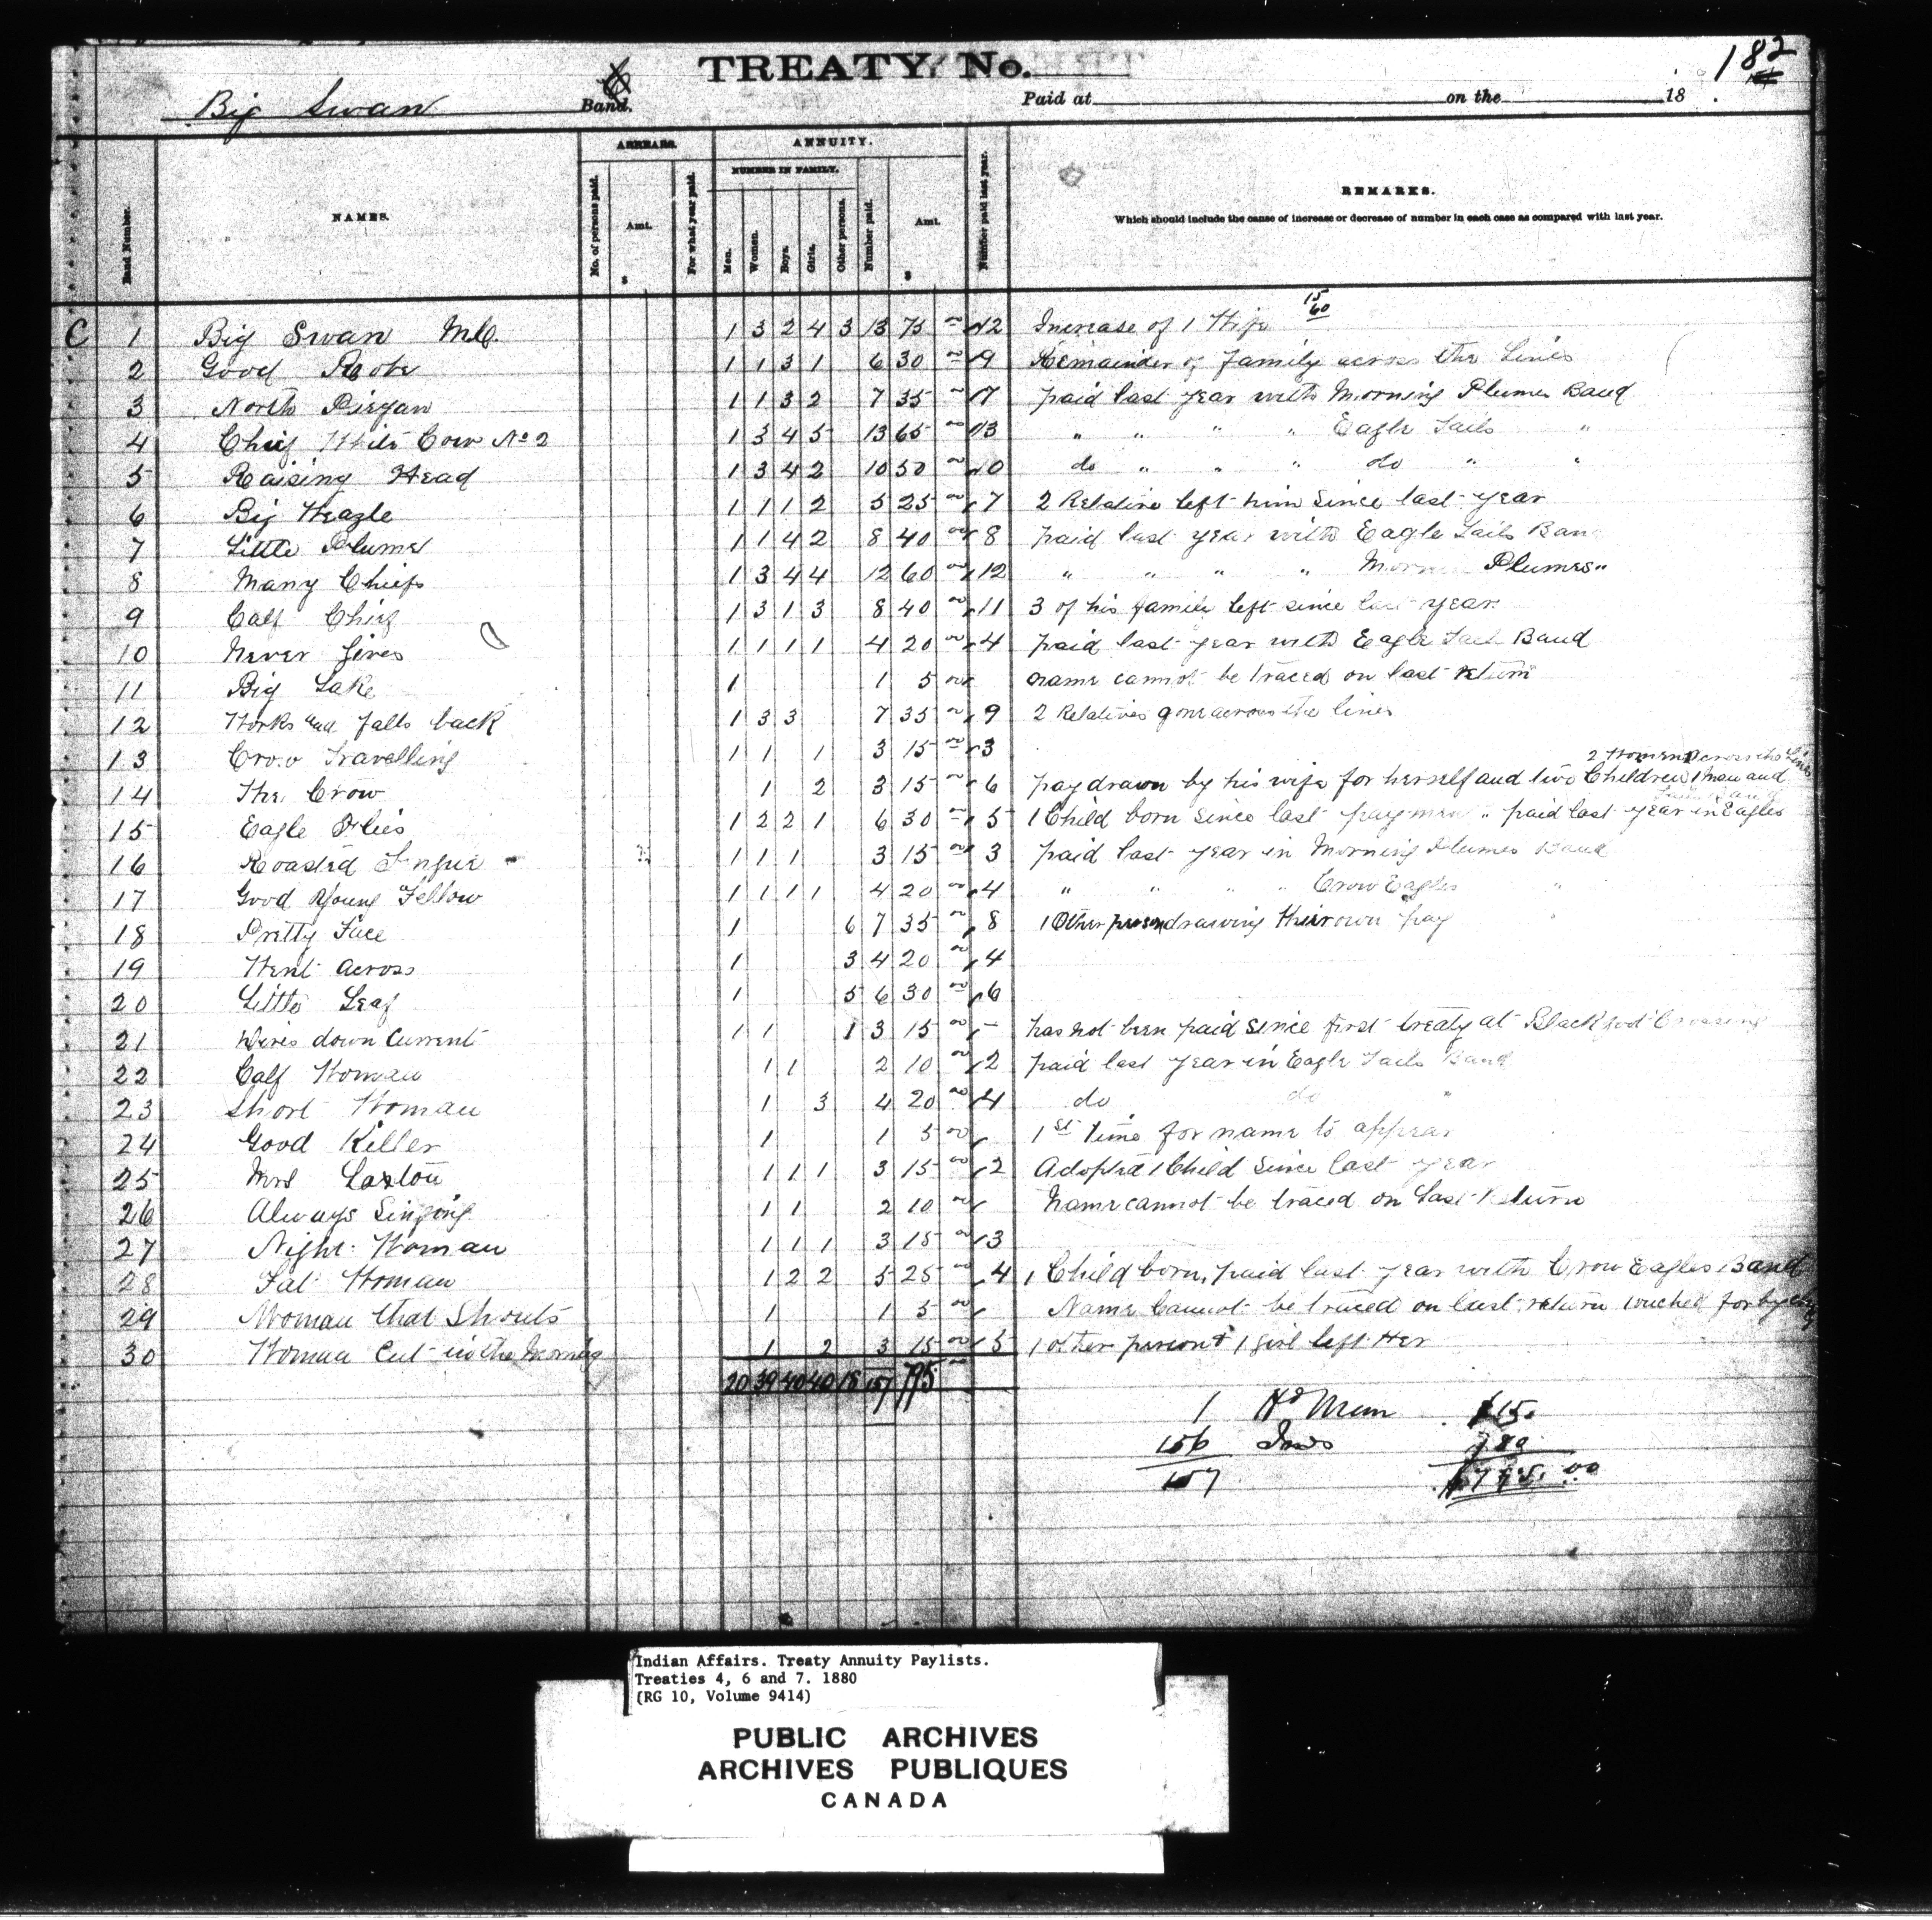 182
TREATY No.
Big Swan Band. Paid at on the 18 .
Band Number. NAMES. ARREARS. No. of persons paid. Amt. $ For what year paid. ANNUITY. NUMBER IN FAMILY. Men. Women. Boys. Girls. Other persons. Number paid. Amt. $ Number paid last year. REMARKS.
Which should include the cause of increase or decrease of number in each case as compared with last year.
15
60
C 1 Big Swan M.C. 1 3 2 4 3 13 75 00 12 Increase of 1 Wife
2 Good Robe 1 1 3 1 6 30 00 9 Remainder of family across the Lines
3 North Piegan 1 1 3 2 7 35 00 7 paid last year with Morning Plumes Band
4 Chief White Cow No 2 1 3 4 5 13 65 00 13 " " " " Eagle Tails "
5 Raising Head 1 3 4 2 10 50 00 10 do " " " do " "
6 Big Weazle 1 1 1 2 5 25 00 7 2 Relative left him since last year
7 Little Plume 1 1 4 2 8 40 00 8 paid last year with Eagle Tails Band
8 Many Chiefs 1 3 4 4 12 60 00 12 " " " " Plumes "
9 Calf Chief 1 3 1 3 8 40 00 11 3 of his family left since last year
10 Never Gives 1 1 1 1 4 20 00 4 paid last year with Eagle Tail Band
11 Big Lake 1 1 5 00 name cannot be traced on last return
12 Works and falls back 1 3 3 7 35 00 9 2 Relatives gone across the lines
13 Crow Travelling 1 1 1 3 15 00 3
2 Women across the Lines
14 The Crow 1 2 3 15 00 6 pay drawn by his wife for herself and two Children 1 Man and
15 Eagle Flies 1 2 2 1 6 30 00 5 1 Child born since last payment " paid last year in Eagles
Tails Band
16 Roasted 1 1 1 3 15 00 3 paid last year in Morning Plumes Band
17 Good Young Fellow 1 1 1 1 4 20 00 4 " " " " Crow Eagles "
18 Pritty Face 1 6 7 35 00 8 1 Other person drawing their own pay
19 Went across 1 3 4 20 00 4
20 Little Leaf 1 5 6 30 00 6
21 Dives down Current 1 1 1 3 15 00 - has not been paid since first treaty at Blackfoot Crossing
22 Calf Woman 1 1 2 10 00 2 paid last year in Eagle Tails Band
23 Short Woman 1 3 4 20 00 4 do do "
24 Good Killer 1 1 5 00 1st Time for name to appear
25 Mrs 1 1 1 3 15 00 2 Adopted 1 Child since last year
26 Always Singing 1 1 2 10 00 Name cannot be traced on Last Return
27 Night Woman 1 1 1 3 15 00 3
28 Fat Woman 1 2 2 5 25 00 4 1 Child born, paid last year with Crow Eagles Band
29 Woman that Shouts 1 1 5 00 Name Cannot be traced on last return vouched for by
30 Woman Cut in the Morning 1 2 3 15 00 5 1 other person & 1 girl left Her
20 39 40 40 18 157 795 00
1 Hd Men $15.
156 Inds 780
157 $795.00
Indian Affairs. Treaty Annuity Paylists.
Treaties 4, 6 and 7. 1880
(RG 10, Volume 9414)
PUBLIC ARCHIVES
ARCHIVES PUBLIQUES
CANADA